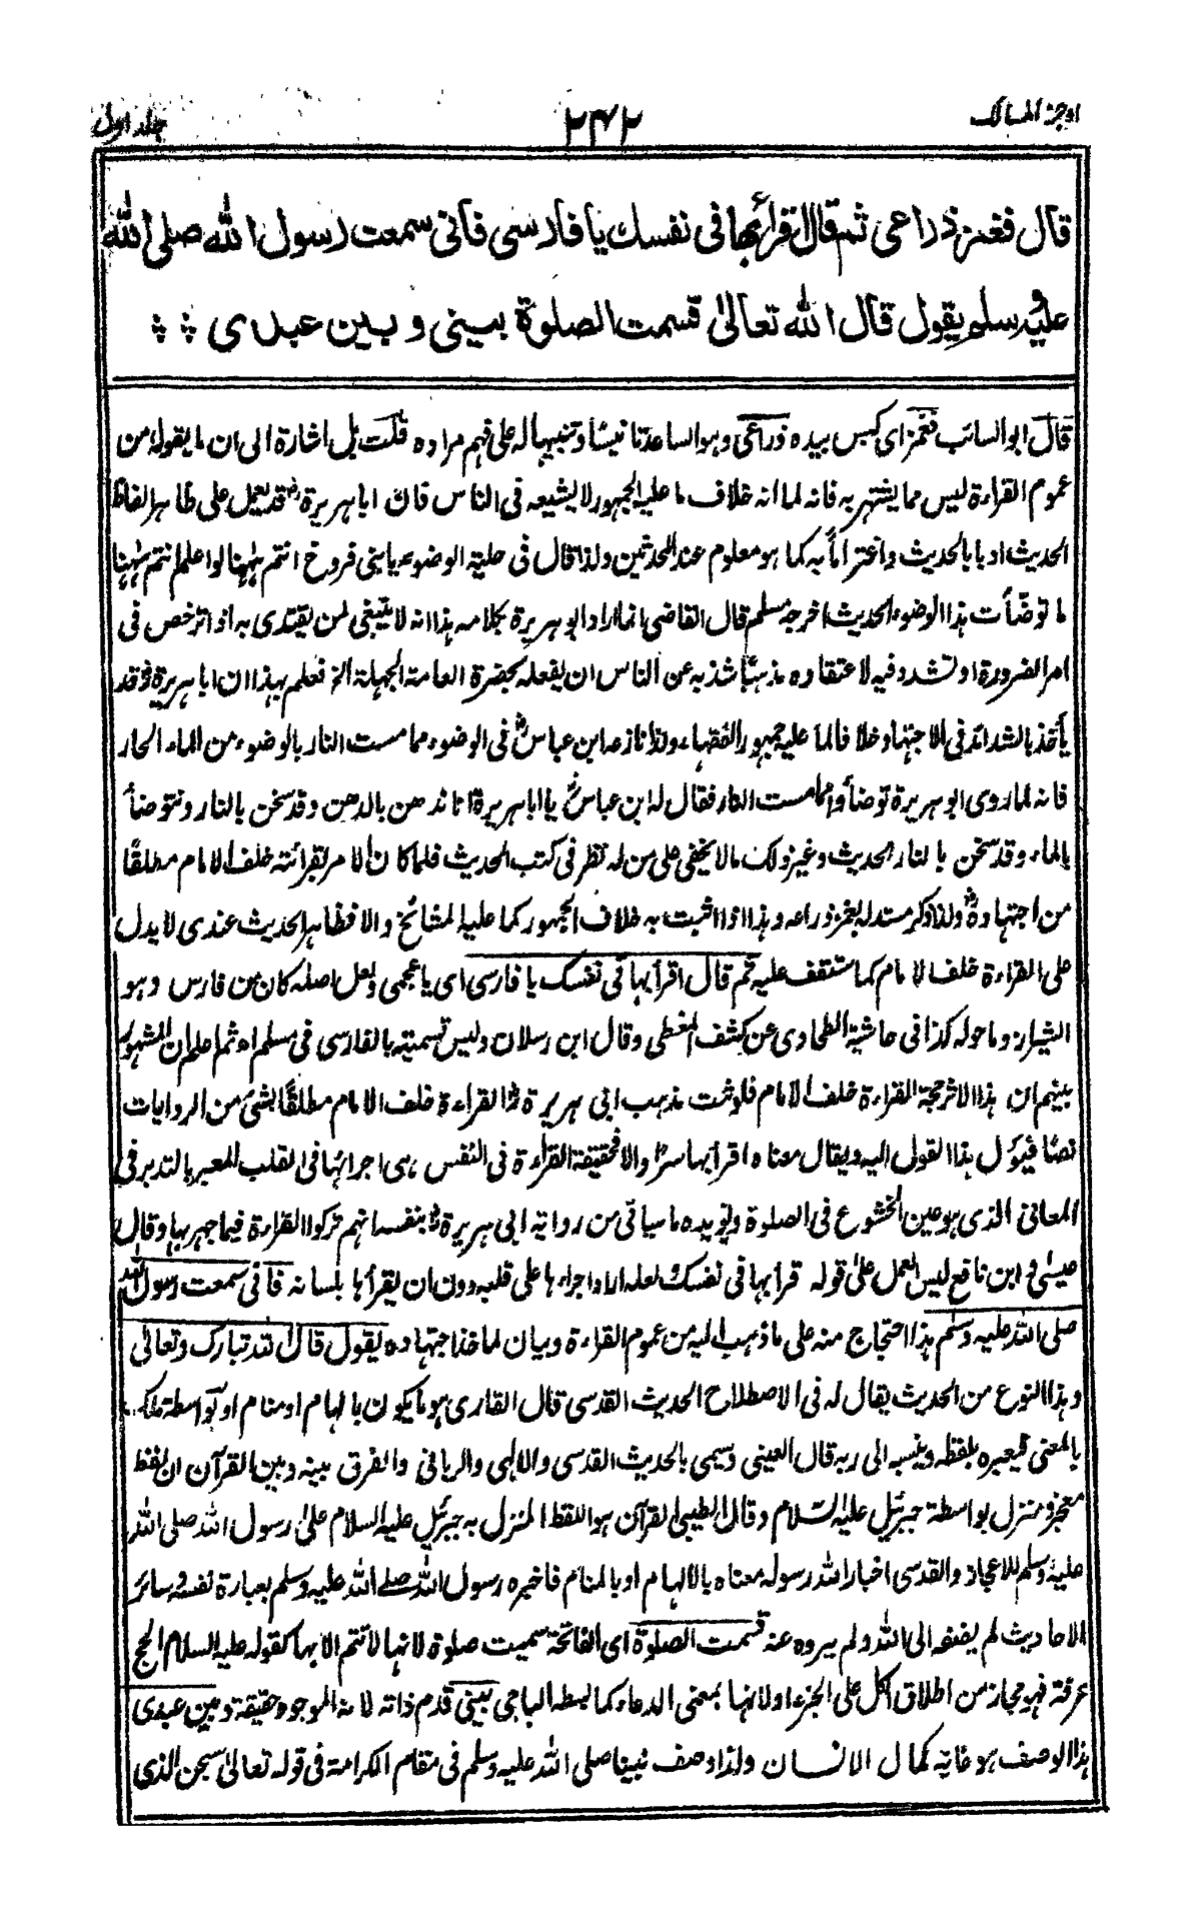 اوجز المسالك
۲۴۲
جلد اول
قال فغمز ذراعی ثم قال اقرأ بها فی نفسك يا فارسی فانی سمعت رسول الله صلی الله
عليه وسلم يقول قال الله تعالىٰ قسمت الصلوة بينی وبين عبدی
قال ابو السائب فغمز ای كبس بيده ذراعی وهو الساعد تانيسًا وتنبيها له علی فهم مراده قلت بل اشارة الی ان ما يقوله من
عموم القراءة ليس مما يشتهر به فانه لما انه خلاف ما عليه الجمهور لا يشيعه فی الناس فان ابا هريرة رض قد يعمل علی ظاهر الفاظ
الحديث ادبا بالحديث واعتراماً به كما هو معلوم عند المحدثين ولذا قال فی حلية الوضوء يا بنی فروخ انتم ههنا لو اعلم انتم ههنا
ما توضأت هذا الوضوء الحديث اخرجه مسلم قال القاضی انما اراد ابو هريرة بكلامه هذا انه لا ينبغی لمن يقتدی به اذا ترخص فی
امر الضرورة او تشدد فيه لاعتقاده مذهبًا شذ به عن الناس ان يفعله بحضرة العامة الجهلة الخ فعلم بهذا ان ابا هريرة رض قد
يأخذ بالشدائد فی الاجتهاد خلافا لما عليه جمهور الفقهاء ولذا نازعه ابن عباس رض فی الوضوء مما مست النار بالوضوء من الماء الحار
فانه لما روی ابو هريرة توضأوا مما مست النار فقال له ابن عباس رض يا ابا هريرة انا ندهن بالدهن وقد سخن بالنار ونتوضأ
بالماء وقد سخن بالنار الحديث وغير ذلك مما لا يخفی علی من له نظر فی كتب الحديث فلما كان الامر بقرائته خلف الامام مطلقًا
من اجتهاده رض ولذا ذكر مستدله بغمز ذراعه وهذا اذا اثبت به خلاف الجمهور كما عليه المشائخ والا فظاهر الحديث عندی لا يدل
علی القراءة خلف الامام كما ستقف عليه ثم قال اقرأ بها فی نفسك يا فارسی ای يا عجمی ولعل اصله كان من فارس وهو
الشيراز وما حوله كذا فی حاشية الطحاوی عن كشف المغطی وقال ابن رسلان وليس تسميته بالفارسی فی مسلم اه ثم اعلم ان المشهور
بينهم ان هذا الاثر حجة القراءة خلف الامام فلو ثبت مذهب ابی هريرة رض القراءة خلف الامام مطلقًا بشیء من الروايات
نصًا فيؤل هذا القول اليه ويقال معناه اقرأ بها سرًا والا فحقيقة القراءة فی النفس هی اجرائها فی القلب المعبر بالتدبر فی
المعانی الذی هو عين الخشوع فی الصلوة ويؤيده ما سيأتی من رواية ابی هريرة رض بنفسه انهم تركوا القراءة فيما جهر بها وقال
عيسیٰ و ابن نافع ليس العمل علیٰ قوله قرأ بها فی نفسك ولعله اراد اجراءها علی قلبه دون ان يقرأها بلسانه فانی سمعت رسول الله
صلی الله عليه وسلم هذا احتجاج منه علی ما ذهب اليه من عموم القراءة وبيان لماخذ اجتهاده يقول قال الله تبارك وتعالیٰ
وهذا النوع من الحديث يقال له فی الاصطلاح الحديث القدسی قال القاری هو ما يكون بالهام او منام او بواسطة ملك
بالمعنی فيعبره بلفظه وينسبه الی ربه قال العينی ويسمی بالحديث القدسی والالهی والربانی والفرق بينه وبين القرآن ان لفظه
معجز ومنزل بواسطة جبرئيل عليه السلام وقال الطيبی القرآن هو اللفظ المنزل به جبرئيل عليه السلام علیٰ رسول الله صلی الله
عليه وسلم للاعجاز والقدسی اخبار الله رسوله معناه بالالهام او بالمنام فاخبره رسول الله صلی الله عليه وسلم بعبارة نفسه وسائر
الاحاديث لم يضفه الی الله ولم يروه عنه قسمت الصلوة ای الفاتحة سميت صلوة لانها لا تتم الا بها كقوله عليه السلام الحج
عرفة فهو مجاز من اطلاق الكل علی الجزء او لانها بمعنی الدعاء كما بسطه الباجی بينی قدم ذاته لانه الموجود حقيقة وبين عبدی
هذا الوصف هو غاية كمال الانسان ولذا وصف نبينا صلی الله عليه وسلم فی مقام الكرامة فی قوله تعالیٰ سبحن الذی